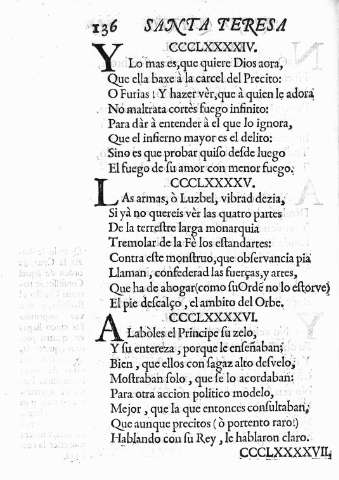 136 SANTA TERESA
CCCLXXXXIV.
Y Lo mas es, que quiere Dios aora,
Que ella baxe à la carcel del Precito:
O Furias! Y hazer vèr, que à quien le adora
No maltrata cortès fuego infinito:
Para dàr à entender à el que lo ignora,
Que el infierno mayor es el delito:
Sino es que probar quiso desde luego
El fuego de su amor con menor fuego.
CCCLXXXXV.
LAs armas, ò Luzbel, vibrad dezia,
Si yà no quereis vèr las quatro partes
De la terrestre larga monarquia
Tremolar de la Fè los estandartes:
Contra este monstruo, que observancia pia
Llaman, confederad las fuerças, y artes,
Que ha de ahogar (como su Ordẽ no lo estorve)
El pie descalço, el ambito del Orbe.
CCCLXXXXVI.
ALabòles el Principe su zelo,
Y su entereza, porque le enseñaban;
Bien, que ellos con sagaz alto desvelo,
Mostraban solo, que se lo acordaban:
Para otra accion politico modelo,
Mejor, que la que entonces consultaban,
Que aunque precitos (ò portento raro!)
Hablando con su Rey, le hablaron claro.
CCCLXXXXVII,